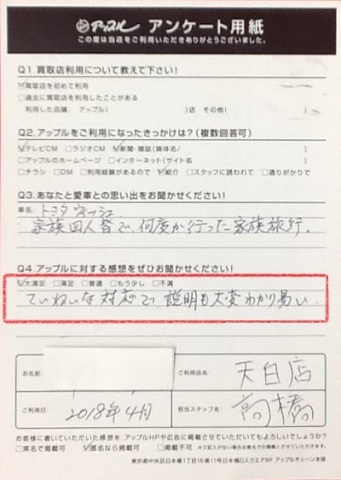 アップル アンケート用紙
この度は当店をご利用いただきありがとうございました。
Q1 買取店利用について教えて下さい!
☑買取店を初めて利用
□過去に買取店を利用したことがある
利用した店舗 アップル( )店 その他( )
Q2.アップルをご利用になったきっかけは?(複数回答可)
☑テレビCM □ラジオCM ☑新聞・雑誌(媒体名/ )
□アップルのホームページ □インターネット(サイト名 )
□チラシ □DM □利用経験があるので ☑紹介 □スタッフに誘われて □通りがかりで
Q3.あなたと愛車との思い出をお聞かせください!
車名: トヨタ ウィッシュ
家族四人皆で、何度か行った家族旅行。
Q4.アップルに対する感想をぜひお聞かせください!
☑大満足 □満足 □普通 □もう少し □不満
ていねいな対応で、説明も大変わかり易い
お名前
ご利用店名 天白店
ご利用日 2018年4月
担当スタッフ名 高橋
お客様に書いていただいた感想を、アップルHPや広告に掲載させていただいてもよろしいでしょうか?
□実名で掲載可 ☑匿名なら掲載可 □掲載不可
東京都中央区日本橋1丁目10番11号日本橋DスクエアBF アップルチェーン本部